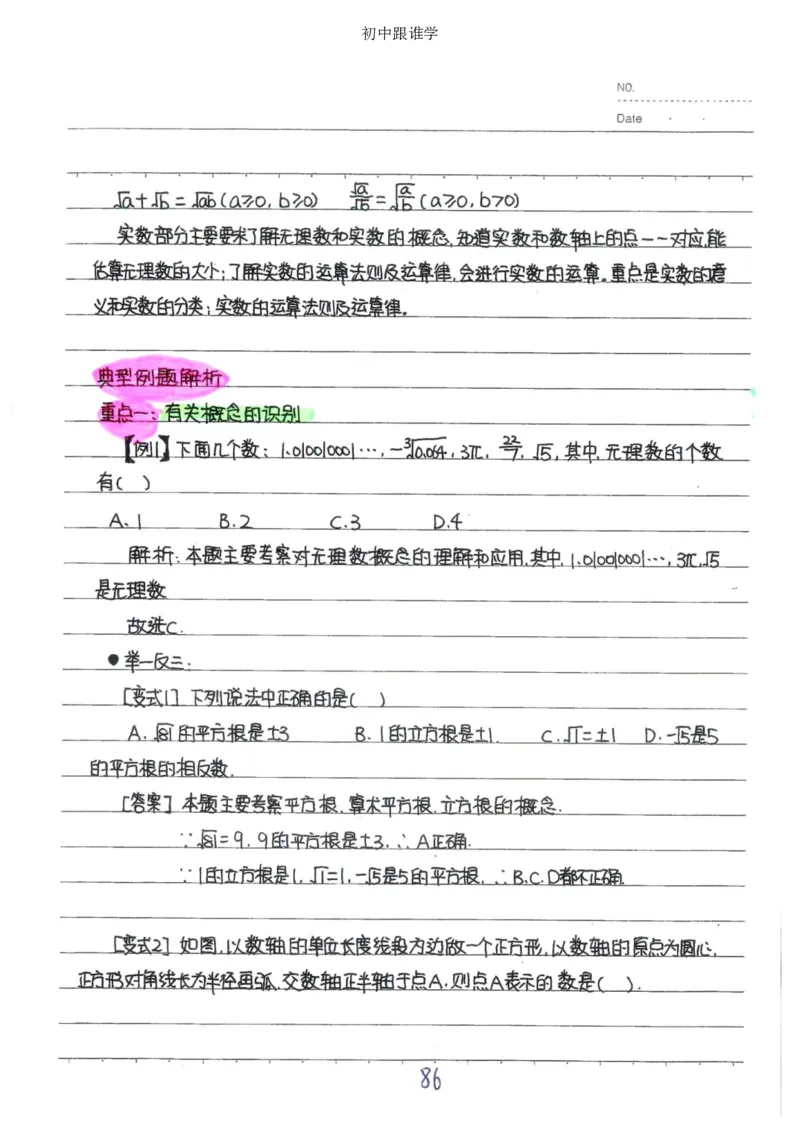 初中跟谁学
NO.
Date
√a+√b=√ab(a≥0,b≥0) √a/√b=√(a/b)(a≥0,b>0)
实数部分主要要求了解无理数和实数的概念,知道实数和数轴上的点一一对应,能
估算无理数的大小;了解实数的运算法则及运算律,会进行实数的运算。重点是实数的意
义和实数的分类;实数的运算法则及运算律。
典型例题解析
重点一:有关概念的识别
【例1】下面几个数:1.010010001…,-³√0.064,3π,22/7,√5,其中,无理数的个数
有( )
A.1 B.2 C.3 D.4
解析:本题主要考察对无理数概念的理解和应用,其中,1.010010001…,3π,√5
是无理数
故选C.
●举一反三:
[变式1] 下列说法中正确的是( )
A.√81的平方根是±3 B.1的立方根是±1. C.√1=±1 D.-√5是5
的平方根的相反数.
[答案] 本题主要考察平方根、算术平方根、立方根的概念.
∵√81=9,9的平方根是±3,∴A正确.
∵1的立方根是1,√1=1,-√5是5的平方根,∴B.C.D都不正确.
[变式2] 如图,以数轴的单位长度线段为边做一个正方形,以数轴的原点为圆心,
正方形对角线长为半径画弧,交数轴正半轴于点A,则点A表示的数是( ).
86